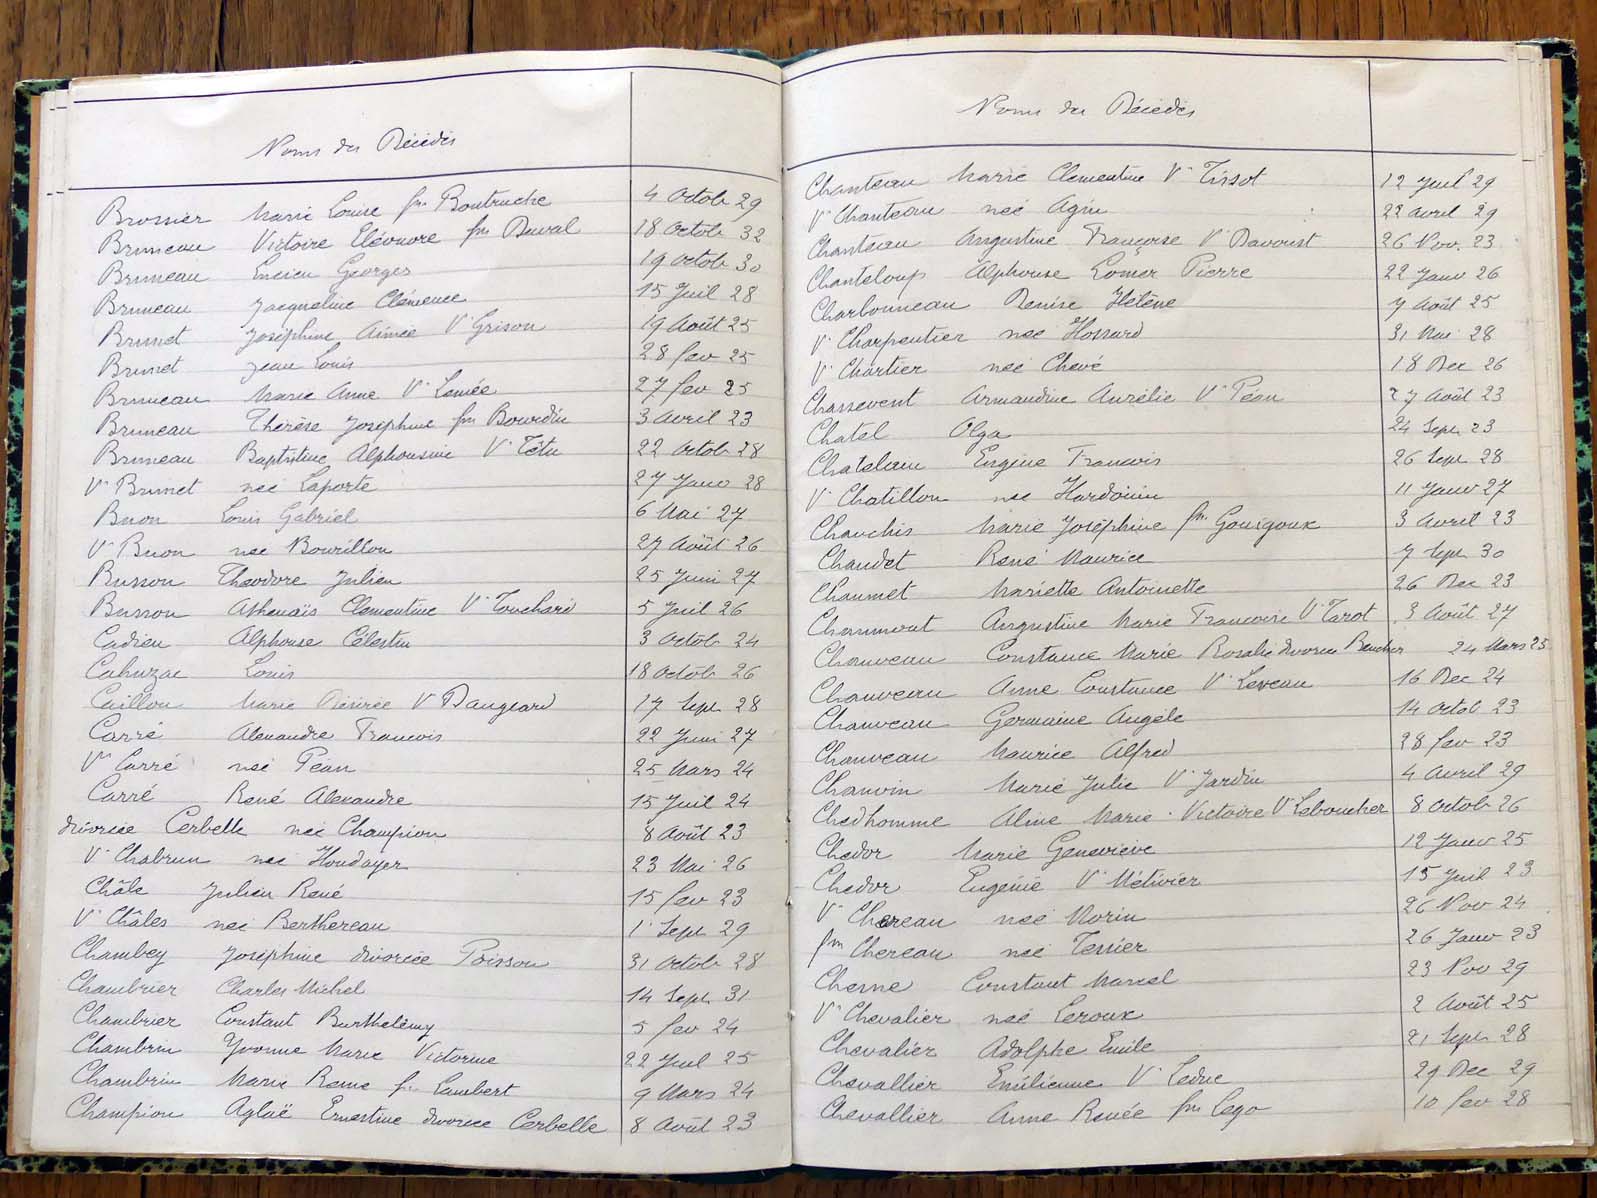 Noms des Décédés
Brossier Marie Louise fme Boutruche 4 Octob 29
Bruneau Victoire Eléonore fme Duval 18 Octob 32
Bruneau Lucien Georges 19 Octob 30
Bruneau Jacqueline Clémence 15 Juil 28
Brunet Joséphine Aimée Ve Grison 19 Août 25
Brunet Jean Louis 28 fev 25
Bruneau Marie Anne Ve Lemée 27 fev 25
Bruneau Thérèse Joséphine fme Bourdin 3 Avril 23
Bruneau Baptistine Alphonsine Ve Têtu 22 Octob 28
Ve Brunet née Laporte 27 Janv 28
Buon Louis Gabriel 6 Mai 27
Ve Buon née Bourillon 27 Août 26
Busson Théodore Julien 25 Juin 27
Busson Athenaïs Clementine Ve Touchard 5 Juil 26
Cadieu Alphonse Célestin 3 Octob 24
Cahuzac Louis 18 Octob 26
Caillou Marie Désirée Ve Daugeard 17 Sept 28
Carré Alexandre Francois 22 Juin 27
Ve Carré née Péan 25 Mars 24
Carré René Alexandre 15 Juil 24
divorcée Cerbelle née Champion 8 Août 23
Ve Chabrun née Houdayer 23 Mai 26
Châle Julien René 15 fev 23
Ve Châles née Berthereau 1 Sept 29
Chambey Joséphine divorcée Poisson 31 Octob 28
Chambrier Charles Michel 14 Sept 31
Chambrier Constant Barthelémy 5 fev 24
Chambrin Yvonne Marie Victorine 22 Juil 25
Chambrin Marie Rene fme Lambert 9 Mars 24
Champion Aglaë Ernestine divorcée Cerbelle 8 Août 23
Noms des Décédés
Chanteau Marie Clementine Ve Tissot 12 Juil 29
Ve Chanteau née Agin 22 Avril 29
Chanteau Augustine Françoise Ve Davoust 26 Nov. 23
Chanteloup Alphonse Lomer Pierre 22 Janv 26
Charbonneau Denise Hélène 7 Août 25
Ve Charpentier née Hossard 31 Mai 28
Ve Chartier née Chevé 18 Dec 26
Chassevent Armandine Aurélie Ve Péan 27 Août 23
Chatel Olga 24 Sept 23
Chateleau Eugène Francois 26 Sept 28
Ve Chatillon née Hardouin 11 Janv 27
Chauchis Marie Joséphine fme Gouigoux 3 Avril 23
Chaudet René Maurice 7 Sept 30
Chaumet Mariette Antoinette 26 Dec 23
Chaumont Augustine Marie Francoise Ve Tarot 3 Août 27
Chauveau Constance Marie Rosalie divorcée Beucher 24 Mars 25
Chauveau Anne Constance Ve Leveau 16 Dec 24
Chauveau Germaine Angèle 14 Octob 23
Chauveau Maurice Alfred 28 fev 23
Chauvin Marie Julie Ve Jardin 4 Avril 29
Chedhomme Aline Marie Victoire Ve Leboucher 8 Octob 26
Chedor Marie Geneviève 12 Janv 25
Chedor Eugénie Ve Métivier 15 Juil 23
Ve Chereau née Morin 26 Nov 24
fme Chereau née Tessier 26 Janv 23
Chesne Constant Marcel 23 Nov 29
Ve Chevalier née Leroux 2 Août 25
Chevalier Adolphe Emile 21 Sept 28
Chevallier Emilienne Ve Leduc 29 Dec 29
Chevallier Anne Renée fme Lego 10 fev 28